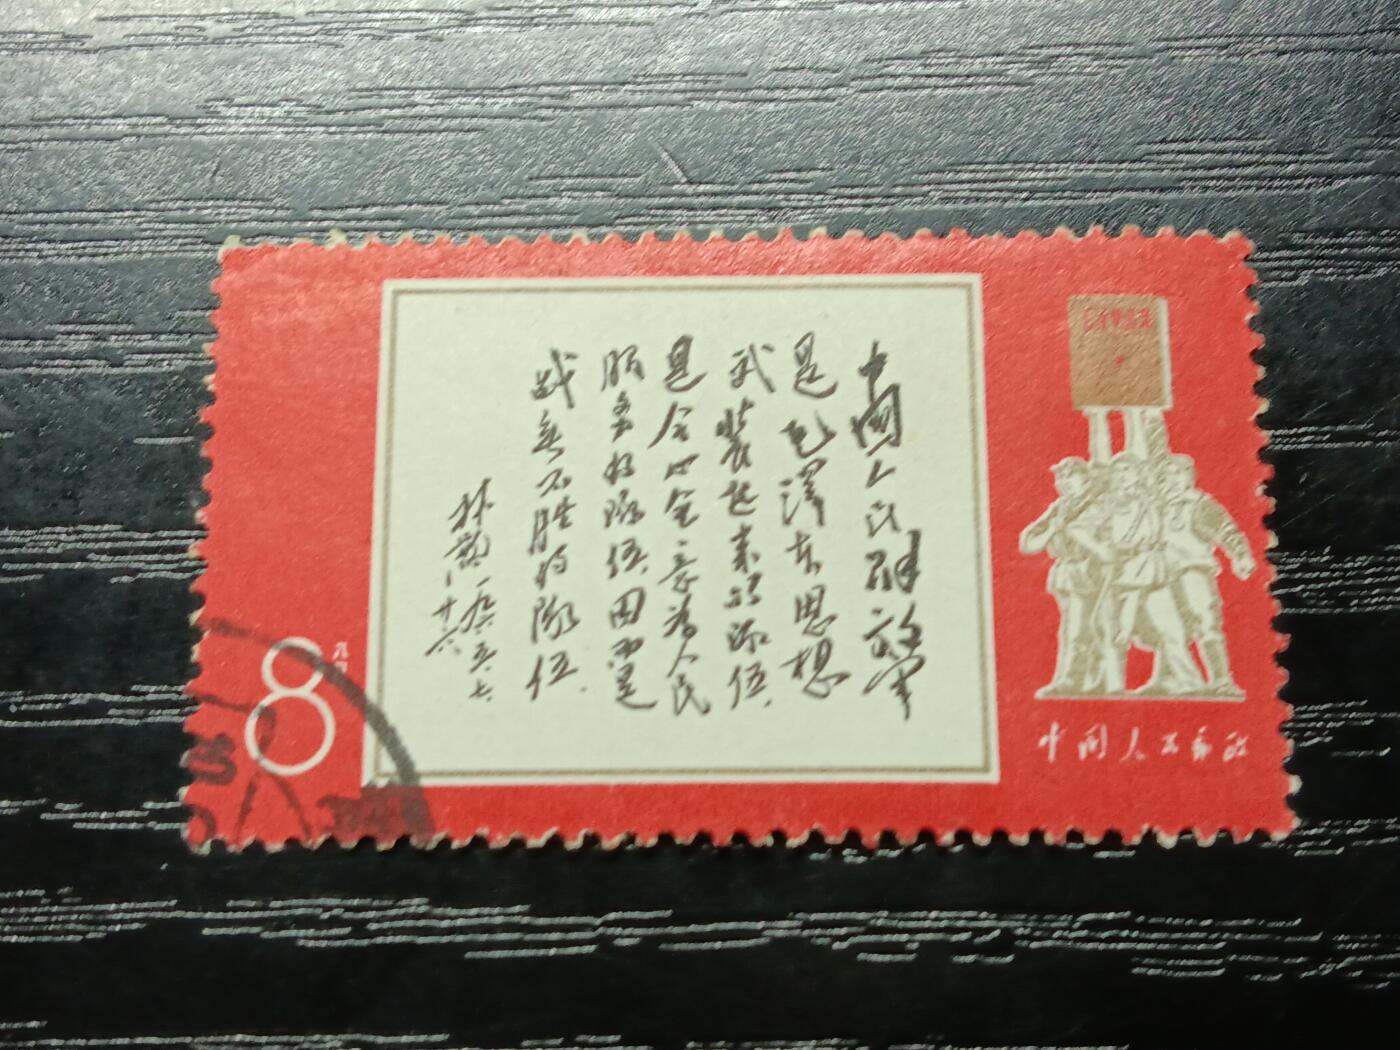 中国人民解放军
是毛泽东思想
武装起来的队伍，
是全心全意为人民
服务的队伍，因而是
战无不胜的队伍．
林彪 一九六五、七、
廿六
8
八分
中国人民邮政